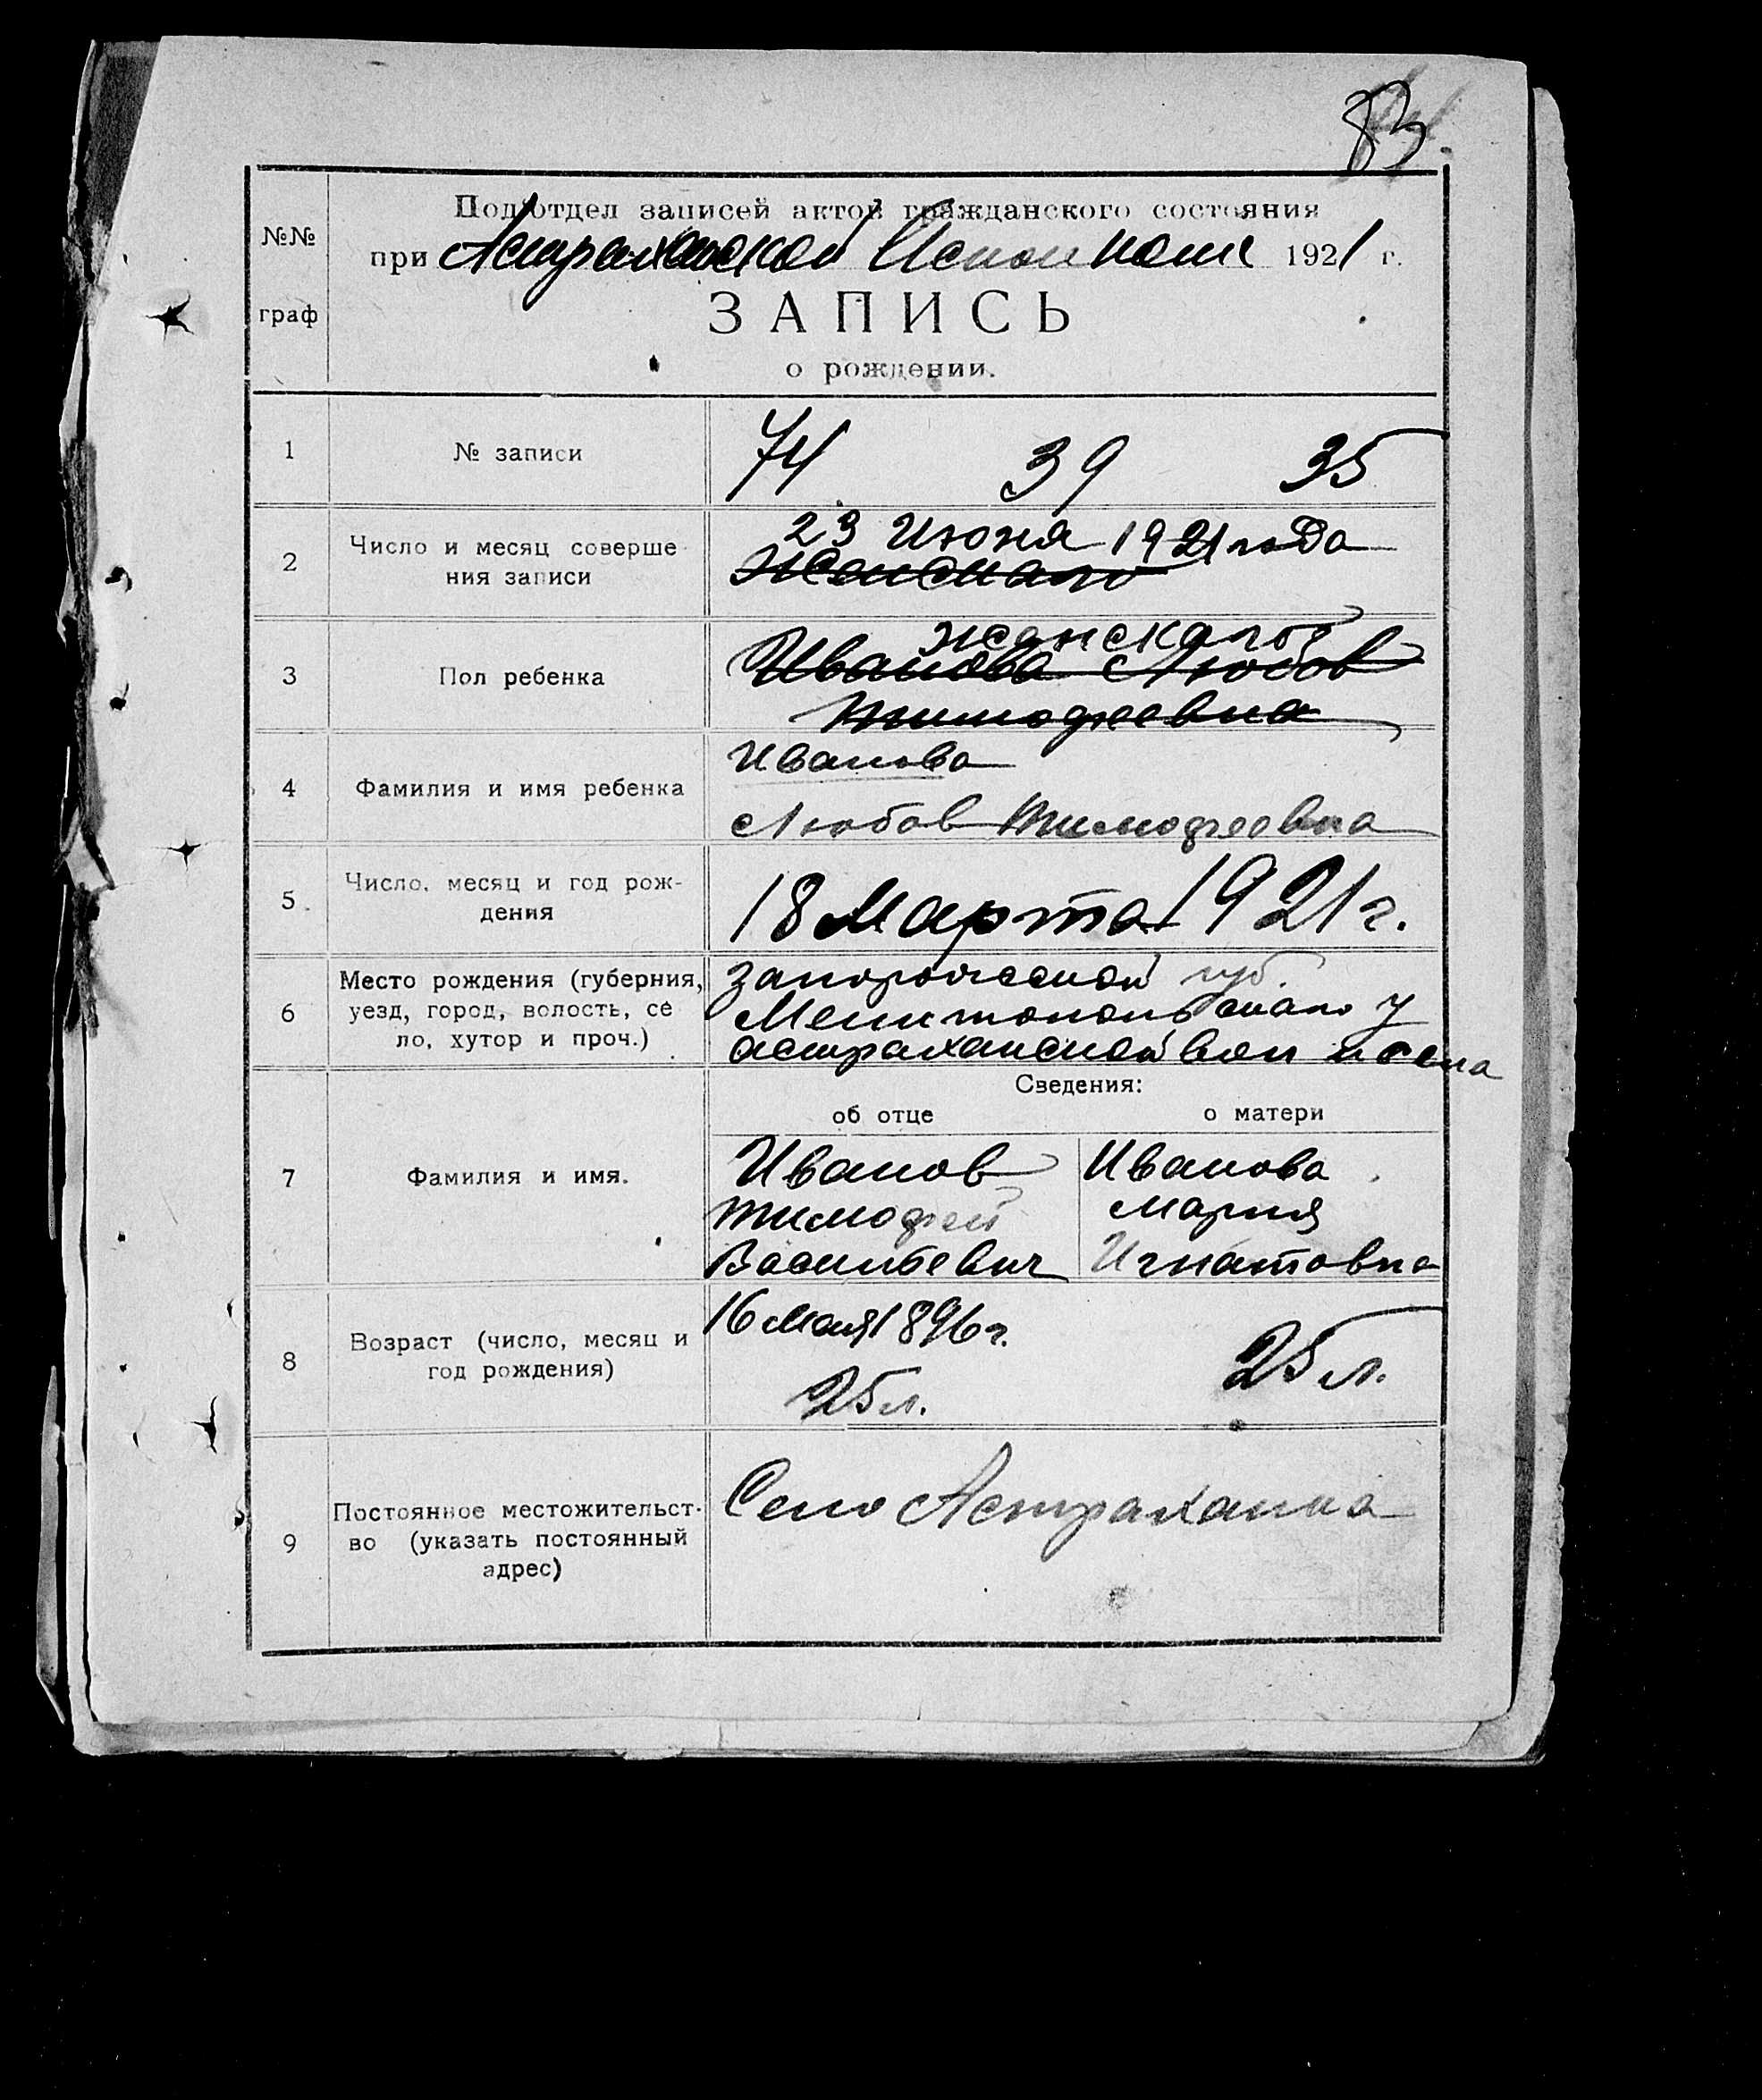 83
№№
граф
Подотдел записей актов гражданского состояния
при Астраханской Исполкоме 1921 г.
ЗАПИСЬ
о рождении.
1
№ записи
74 39 35
2
Число и месяц соверше
ния записи
23 Июня 1921 года
Женскаго
3
Пол ребенка
женскаго
Иванова Любов
Тимофеевна
4
Фамилия и имя ребенка
Иванова
Любов Тимофеевна
5.
Число, месяц и год рож-
дения
18 Марта 1921 г.
6
Место рождения (губерния,
уезд, город, волость, се
ло, хутор и проч.)
Запорожской губ.
Мелитопольскаго у
астраханской вол и села
Сведения:
об отце
о матери
7
Фамилия и имя.
Иванов
Тимофей
Васильевич
Иванова
Мария
Игнатовна
8
Возраст (число, месяц и
год рождения)
16 Мая 1896 г.
25 л.
25 л.
9
Постоянное местожительст-
во (указать постоянный
адрес)
Село Астраханка